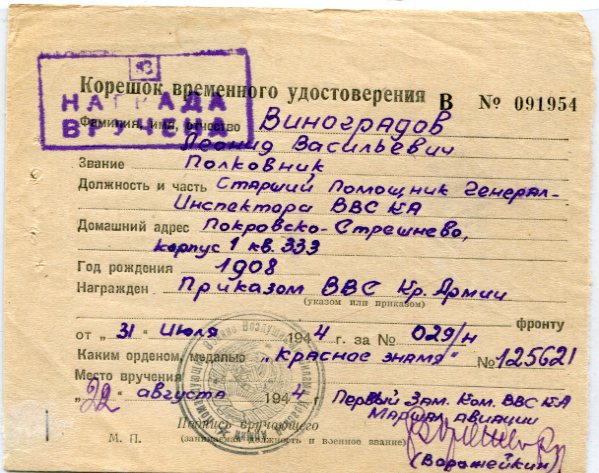 З
НАГРАДА
ВРУЧЕНА
Корешок временного удостоверения В № 091954
Фамилия, имя, отчество Виноградов
Леонид Васильевич
Звание Полковник
Должность и часть Старший Помощник Генерал-
Инспектора ВВС КА
Домашний адрес Покровско-Стрешнево,
корпус 1 кв. 333
Год рождения 1908
Награжден Приказом ВВС Кр. Армии
(указом или приказом)
фронту
от „ 31 " Июля 1944 г. за № 029/н
Каким орденом, медалью „Красное знамя" № 125621
Место вручения
„ 22 " августа 1944 г. Первый Зам. Ком. ВВС КА
Маршал авиации
Подпись вручающего
М. П. (занимаемая должность и военное звание)
(Ворожейкин)